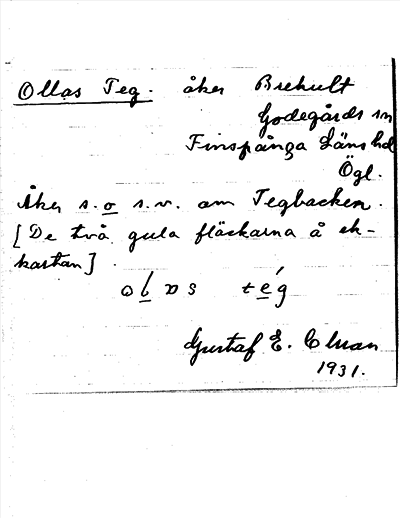 Ollas Teg. åker Brekult
Godegårds sn
Finspånga Läns hd
Ögl.
Åker s.o s.v. om Tegbacken.
[De två gula fläckarna å ek-
kartan].
Gustaf E.
1931.